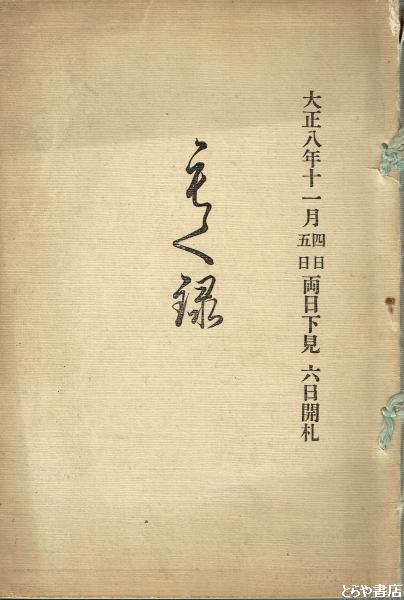 大正八年十一月四日五日両日下見 六日開札
もく録
とらや書店